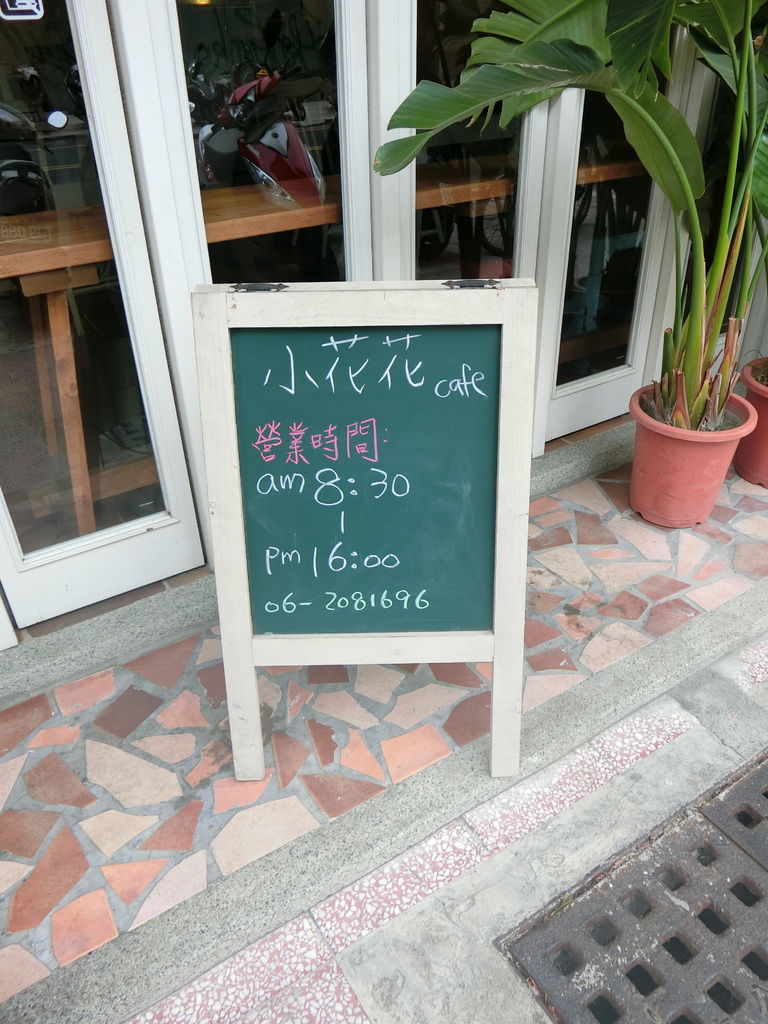 小花花 cafe
營業時間:
am 8:30
|
pm 16:00
06-2081696